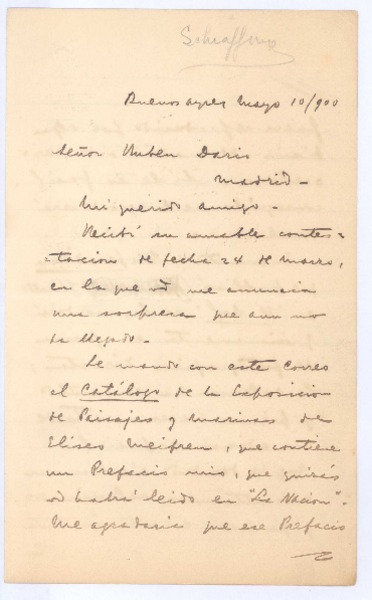 Schiaffino
Buenos Ayres Mayo 10/900
Señor Ruben Dario
Madrid -
Mi querido amigo -
Recibí su amable contes=
=tacion de fecha 24 de Marzo,
en la que vd me anuncia
una sorpresa que aun no
ha llegado.
Le mando con este Correo
el Catálogo de la Exposicion
de Paisajes y Marinas de
Eliseo Meifren, que contiene
un Prefacio mio, que quizás
vd habrá leido en "La Nacion".
Me agradaria que ese Prefacio